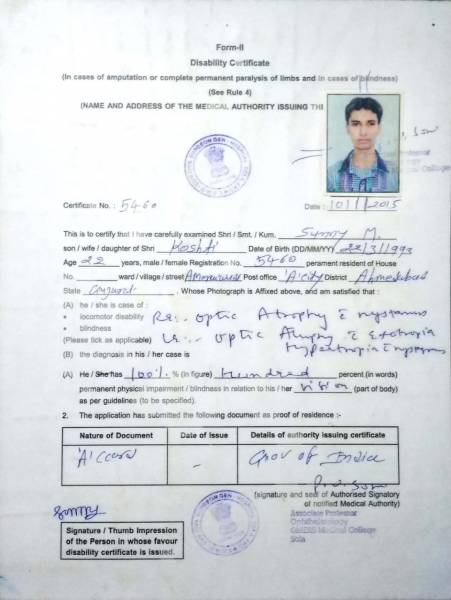 Form-II
Disability Certificate
(In cases of amputation or complete permanent paralysis of limbs and in cases of blindness)
(See Rule 4)
(NAME AND ADDRESS OF THE MEDICAL AUTHORITY ISSUING THE
Certificate No. : 5460
Date : 10/1/2015
This is to certify that I have carefully examined Shri / Smt. / Kum. Sunny M.
son / wife / daughter of Shri Koshti Date of Birth (DD/MM/YY) 22/3/1993
Age 22 years, male / female Registration No. 5460 perament resident of House
No. ward / village / street Amraiwadi Post office 'A'city District Ahmedabad
State Gujarat, Whose Photograph is Affixed above, and am satisfied that :
(A) he / she is case of :
• locomotor disability Re:- optic Atrophy c nystagmus
• blindness
(Please tick as applicable) Le:- optic Atrophy c Exotropia
Hypertropia c nystagmus
(B) the diagnosis in his / her case is
(A) He / She has 100% % (in figure) hundred percent (in words)
permanent physical impairment / blindness in relation to his / her vision (part of body)
as per guidelines (to be specified).
2. The application has submitted the following document as proof of residence :-
Nature of Document Date of Issue Details of authority issuing certificate
'A' Card – Gov of India
(signature and seal of Authorised Signatory
of notified Medical Authority)
Associate Professor
Ophthalmology
GMERS Medical College
Sola
Sunny
Signature / Thumb Impression
of the Person in whose favour
disability certificate is issued.